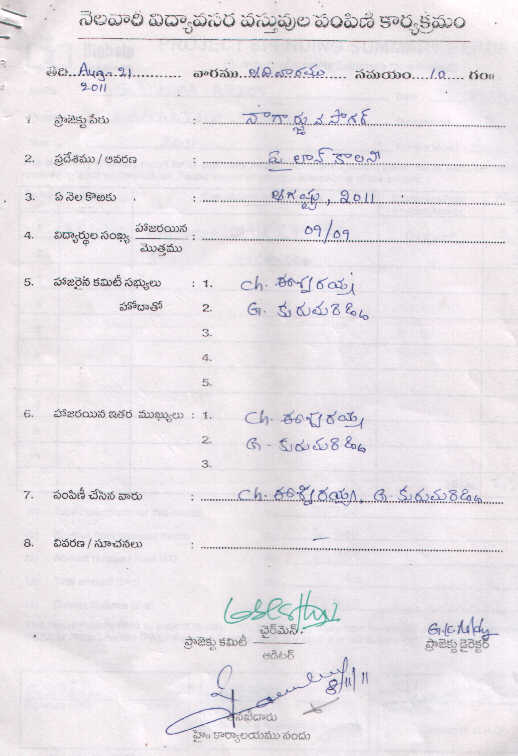 నెలవారి విద్యావసర వస్తువుల పంపిణి కార్యక్రమం
తేది Augn 21 2011 వారము ఆదివారము సమయం 10 గం॥
1 ప్రాజెక్టు పేరు : నాగార్జున సాగర్
2. ప్రదేశము / ఆవరణ : పైలాన్ కాలని
3. ఏ నెల కొఱకు : ఆగష్టు, 2011
4. విద్యార్థుల సంఖ్య హాజరయిన మొత్తము : 09/09
5. హాజరైన కమిటీ సభ్యులు హోదాతో : 1. Ch. ఈశ్వరయ్య
2. G. కురుమరెడ్డి
3.
4.
5.
6. హాజరయిన ఇతర ముఖ్యులు : 1. Ch. ఈశ్వరయ్య
2. G. కురుమరెడ్డి
3.
7. పంపిణీ చేసిన వారు : Ch. ఈశ్వరయ్య, G. కురుమరెడ్డి
8. వివరణ / సూచనలు : –
ప్రాజెక్టు కమిటీ చైర్‌మెన్ ఆడిటర్
G.K.Reddy
ప్రాజెక్టు డైరెక్టర్
8/11/11
తనిఖీదారు
హై॥ కార్యాలయము నందు